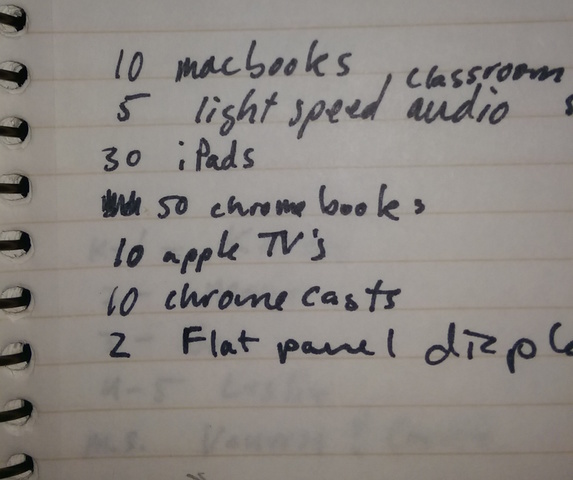 10 macbooks
5 light speed classroom audio
30 iPads
50 chromebooks
10 apple TV's
10 chromecasts
2 Flat panel